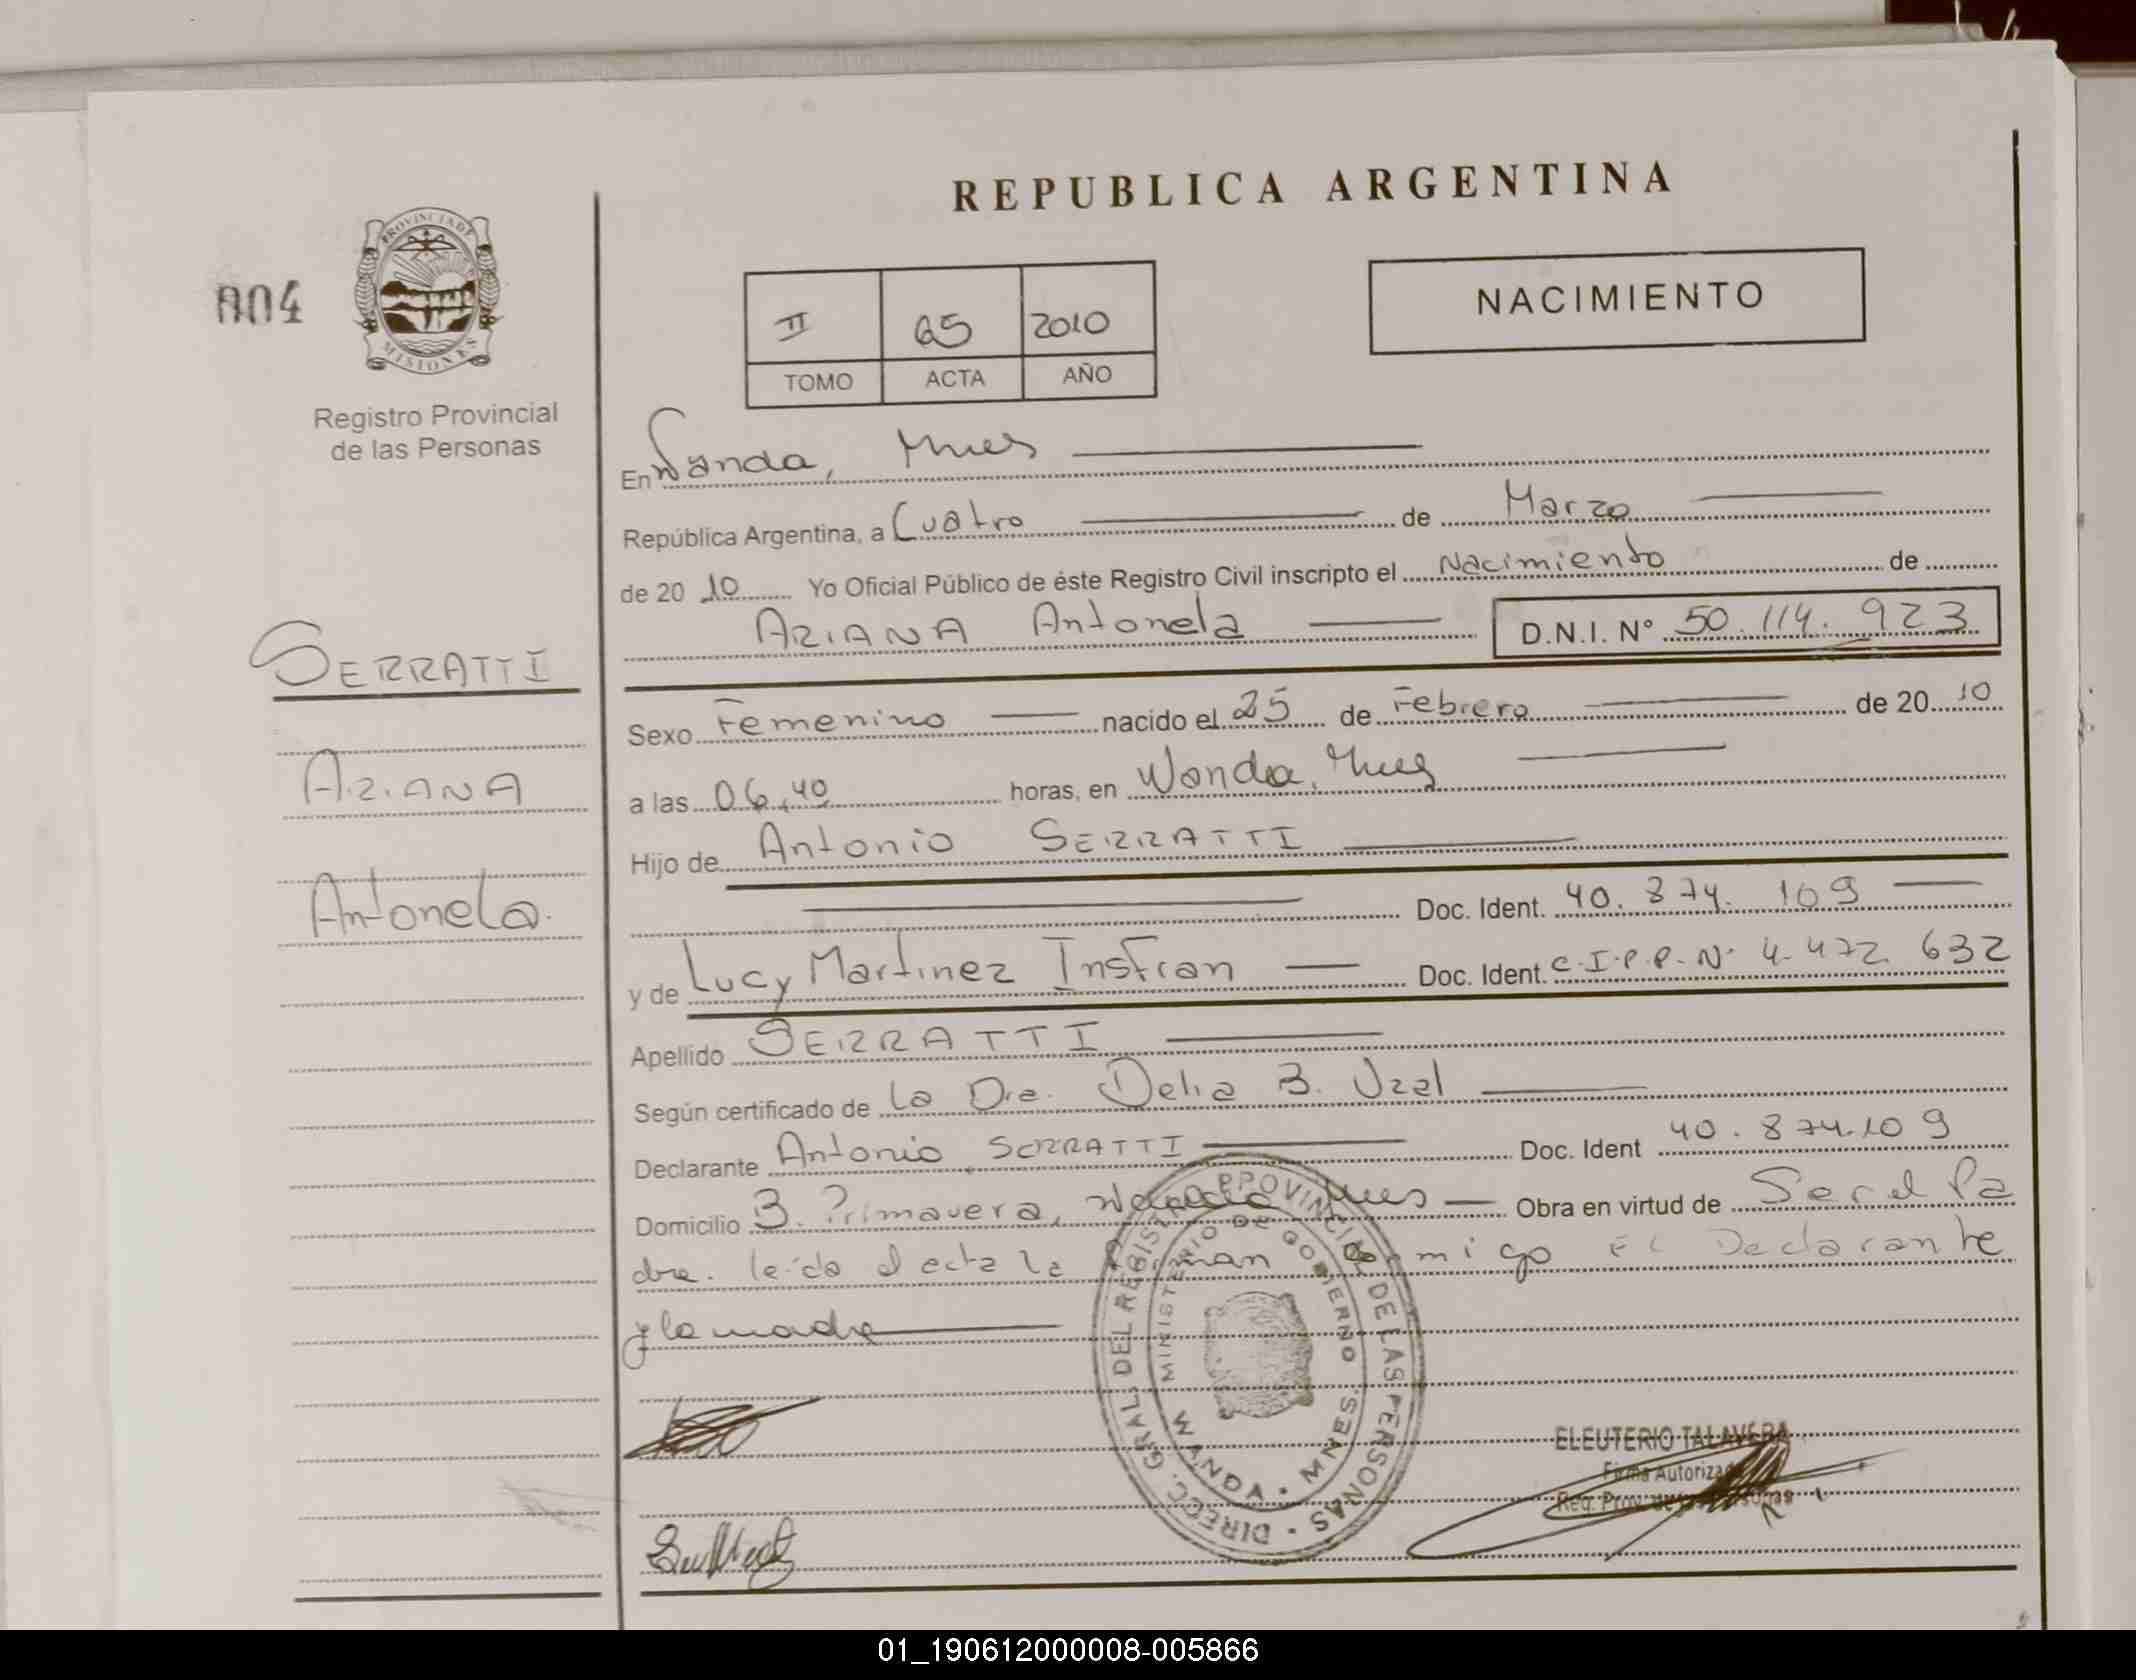 REPUBLICA ARGENTINA
004
PROVINCIA DE
MISIONES
Registro Provincial
de las Personas
II 65 2010
TOMO ACTA AÑO
NACIMIENTO
SERRATTI
ARIANA
Antonela.
En Wanda, Mnes
República Argentina, a Cuatro de Marzo
de 2010 Yo Oficial Público de éste Registro Civil inscripto el Nacimiento de
ARIANA Antonela D.N.I. Nº 50.114.923
Sexo Femenino nacido el 25 de Febrero de 2010
a las 06,40 horas, en Wanda, Mnes
Hijo de Antonio SERRATTI
Doc. Ident. 40.874.109
y de Lucy Martinez Insfran Doc. Ident. C.I.P.P.Nº 4.472.632
Apellido SERRATTI
Según certificado de la Dra. Delia B. Uzal
Declarante Antonio SERRATTI Doc. Ident 40.874.109
Domicilio B. Primavera, Wanda Mnes Obra en virtud de Ser el Pa
dre. leida el acta la firman conmigo El Declarante
y la madre
DIRECC. GRAL. DEL REGIST. PROVINCIAL DE LAS PERSONAS
MINISTERIO DE GOBIERNO
WANDA · MNES.
ELEUTERIO TALAVERA
Firma Autorizada
Reg. Prov. de las Personas
01_190612000008-005866